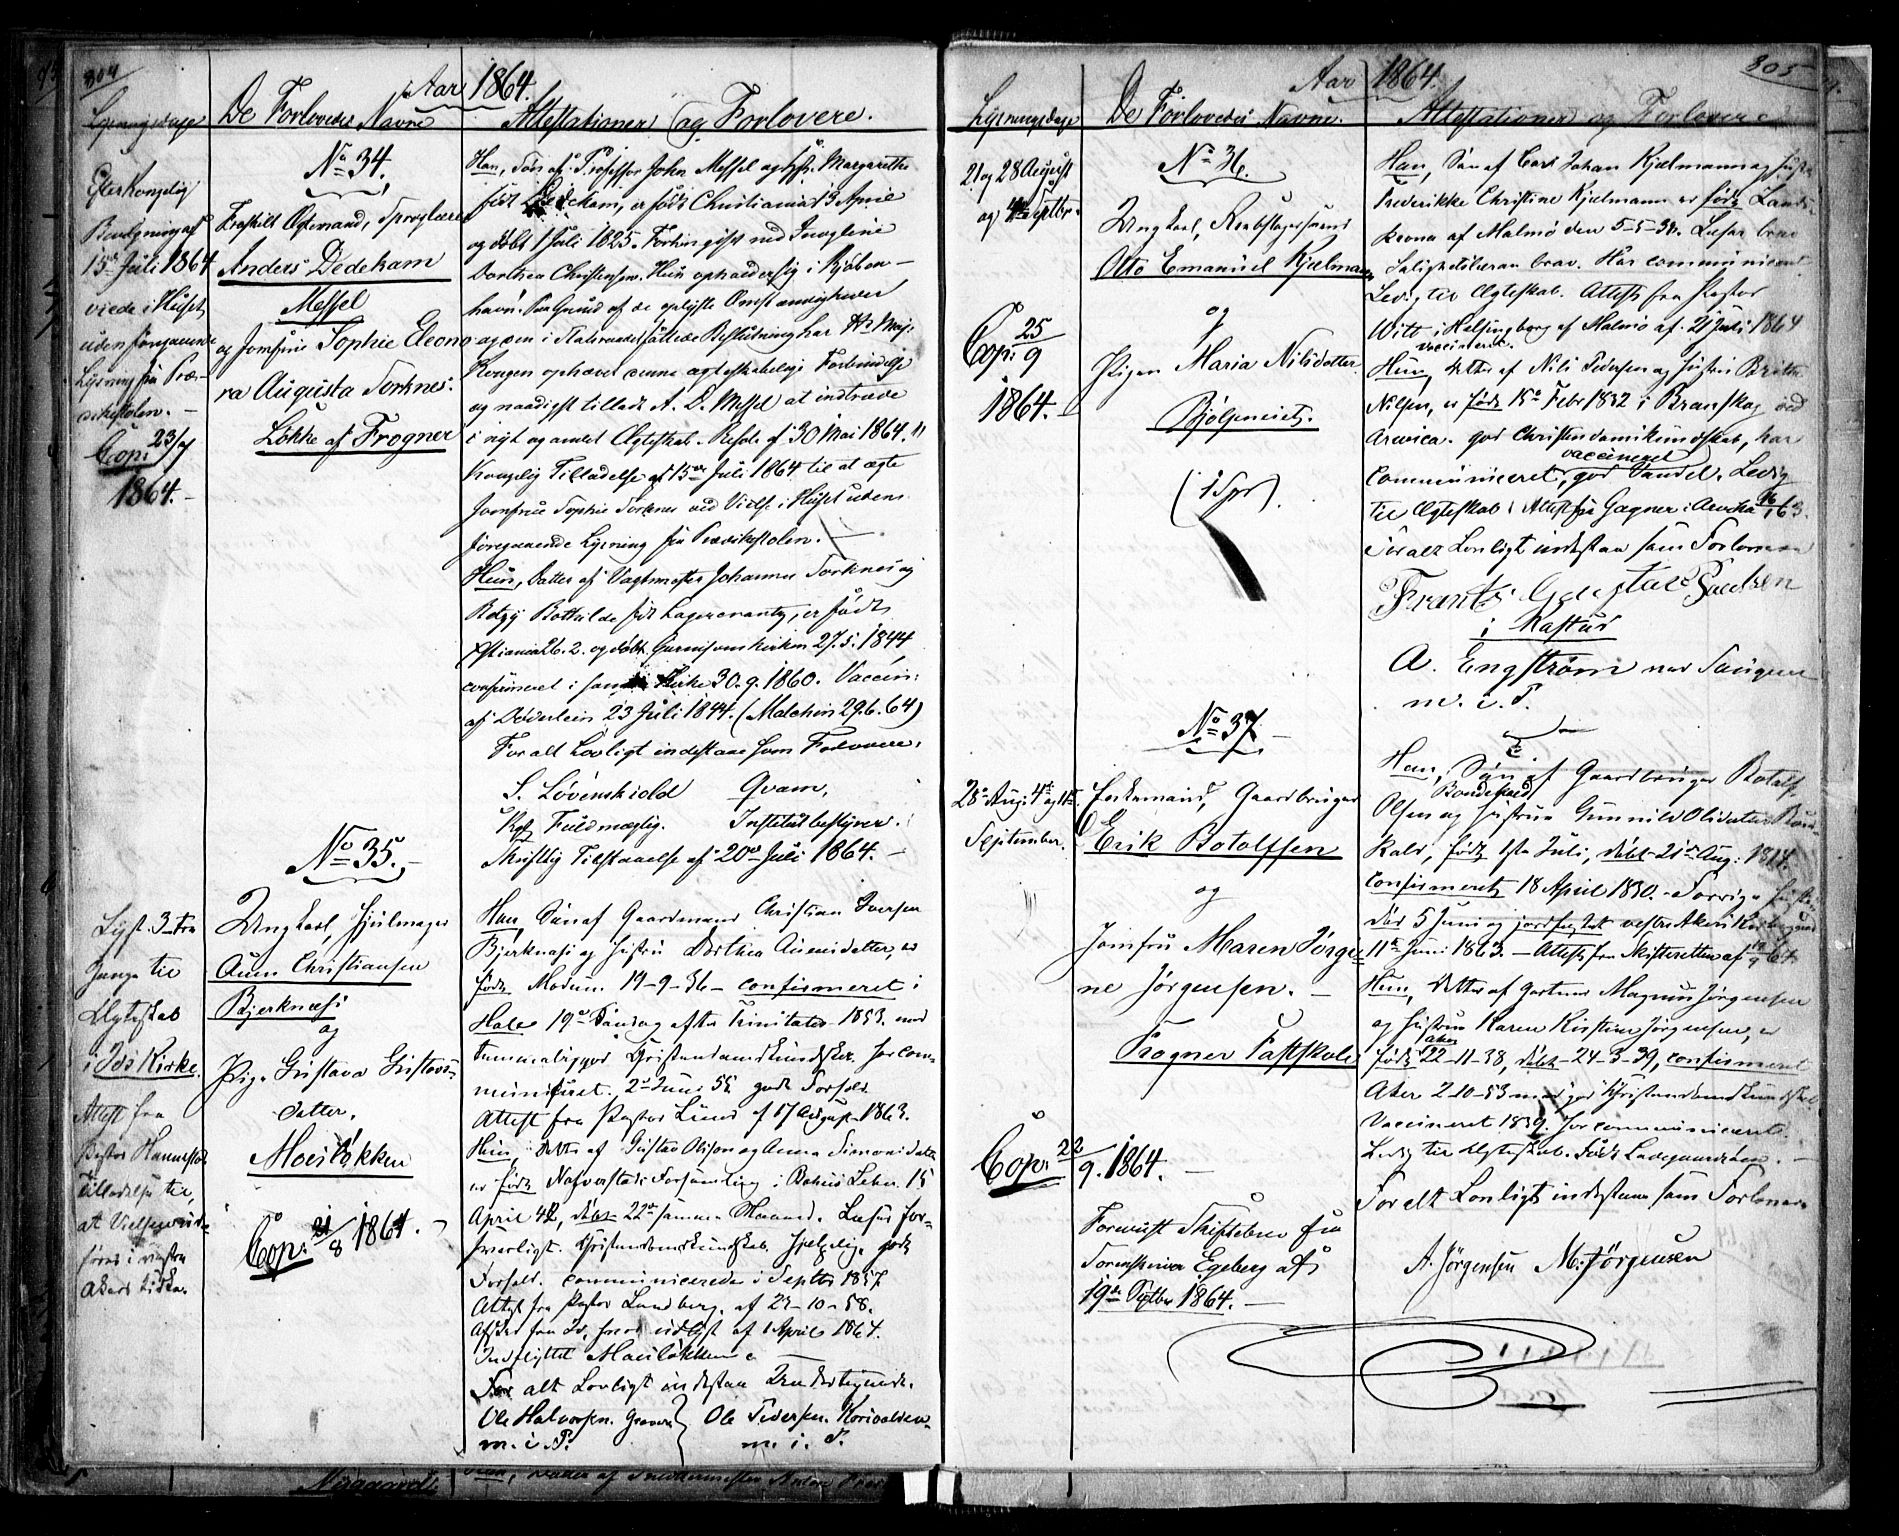 804
Aar 1864.
Lysningsdage
De Forlovedes Navne
Attestationer og Forlovere.
Efter Kongelig
Bevilgning af
15de Juli 1864
viede i Huset,
uden foregaaende
Lysning fra Præ-
dikestolen. -
Cop: 23/7
1864. -
No 34.
Fraskilt Ægtemand, Sproglærer
Anders Dedekam
Messel
og Jomfrue Sophie Eleono
ra Augusta Torknes.
Løkke af Frogner
Han, Søn af Professor John Messel og Margarethe
født Dedekam, er født Christiania 13 April
og døbt 1 Juli 1825. Forhen gift med Inogline
Dorthea Christensen. Hun opholder sig i Kjøben-
havn. Paa Grund af de oplyste Omstændigheder
og den i Statsraadet fattede Beslutning har Hs Maj.
Kongen ophævet denne ægteskabelige Forbindelse
og naadigst tilladt A. D. Messel at indtræde
i nyt og andet Ægteskab. Resol. af 30 Mai 1864.
Kongelig Tilladelse af 15de Juli 1864 til at ægte
Jomfrue Sophie Torknes ved Vielse i Huset uden
foregaaende Lysning fra Prædikestolen. -
Hun, Datter af Vagtmester Johannes Torknes og
Betzy Bothilde født Lagercrantz, er født
Xstiania 26.2. og døbt Garnisonskirken 27.5.1844,
confirmeret i samme Kirke 30.9.1860. Vaccin:
af Døderlein 23 Juli 1844. (Malchin 29.6.64)
For alt Lovligt indestaae som Forlovere:
S. Løvenskiold Qvam,
Kgl Fuldmægtig. Institutbestyrer.
Skriftlig Tilstaaelse af 20de Juli 1864. -
Lyst 3 Tre
Gange til
Ægteskab
i Ids Kirke.
Attest fra
Pastor
Tilladelse til,
at Vielsen ud-
føres i vestre
Akers Kirke.
No 35.
Ungkarl, Hjulmager
Aum Christiansen
Bjerknæs
og
Pige Gustava Gustavs-
datter,
Moesløkken
Cop: 21/8 1864.
Han, Søn af Gaardmand Christian Iversen
Bjerknæs og Hustru Dorthea Arnesdatter, er
født Modum 19-9-36 - confirmeret i
Hole 19de Søndag efter Trinitatis 1853. med
temmelig god Christendomskundskab. har com-
municeret. 2 Juni 55 godt Forhold
Attest fra Pastor Lund af 17 August 1863.
Hun, Datter af Gustav Olsson og Anna Simonsdatter
er født Nafverstads Forsamling i Bohus Lehn. 15
April 42, døbt 22de samme Maaned. Læser for-
svarligt. Christendomskundskab. hjelpelig. godt
Forhold. communicerede i Septbr 1857
Attest fra Pastor Lundberg. af 27-10-58.
Attest fra Id, hvor udlyst af 1 April 1864.
Indflyttet Moesløkken.
For alt Lovligt indestaa Undertegnede.
Ole Halvorsen Graver Ole Pedersen Korsvolden
m. i. P. m. i. P.
805
Aar 1864.
Lysningsdage
De Forlovedes Navne.
Attestationer og Forlovere
21 og 28 August
og 4de Septbr.
Cop: 25/9
1864. -
No 36.
Ungkarl, Rebslagersvend
Otto Emanuel Kjelmann
og
Pigen Maria Nilsdatter
Bjølsenset.
(1 Spr).
Han, Søn af Carl Johan Kjelmann og Hustru
Frederikke Christine Kjelmann er født Lands-
krona af Malmø den 5-5-38. Läsar brav
Salighetsläran brav. Har communicent
Ledig til Ægteskab. Attest fra Pastor
Witt i Helsingborg af Malmø af 21 Juli 1864
vaccineret.
Hun, Datter af Nils Pedersen og Hustru Britta
Nilsen, er født 15de Febr 1832 i Brunskog ved
Arvica. god Christendomskundskab, har
vaccineret
communiceret, god Vandel. Ledig
til Ægteskab. Attest fra Gagner i Arvika 16/1 63.
For alt Lovligt indestaa som Forlovere
Frants Gustav Paulsen
i Kastus
A. Engstrøm ved Tangen
m. i. P.
28de Aug. 4de og 11te
September.
No 37.
Enkemand, Gaardbruger
Erik Botolfsen
og
Jomfru Maren Jørgi-
ne Jørgensen. -
Frogner Fattskole
Cop: 22/9. 1864. -
Forevist Skiftebrev fra
Sorenskriver Egeberg af
19de Septbr 1864. -
Han, Søn af Gaardbruger Botolf
Bondekald
Olsen og Hustru Gunnild Olsdatter Bon-
kald, født 1ste Juli, døbt 21de Aug: 1814.
confirmeret 18 April 1830. Forrige Hustru
død 5 Juni og jordfæstet vestre Akers Kirkegaard
11te Juni 1863. - Attest fra Skifteretten af 19/9 64
Hun, Datter af Gartner Magnus Jørgensen
og Hustru Karen Kirstine Jørgensen, er
Aker
født 22-11-38, døbt 24-3-39, confirmeret
Aker 2-10-53 med god Christendomskundskab
Vaccineret 1839. har communiceret.
Ledig til Ægteskab. Født Ladegaardsøen. -
For alt Lovligt indestaa som Forlovere
A. Jørgensen M. Jørgensen